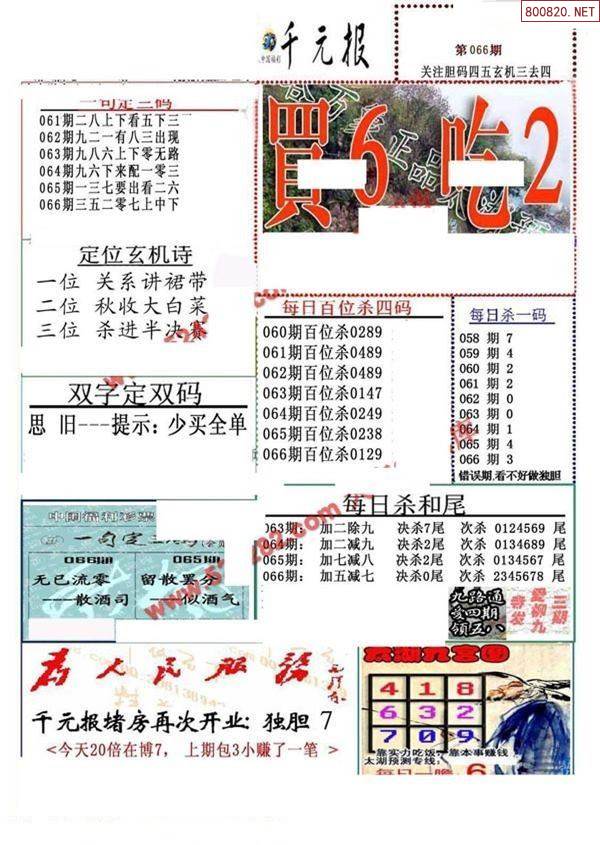 800820.NET
千元报
第066期
关注胆码四五玄机三去四
一句定三码
061期二八上下看五下三
062期九二一有八三出现
063期九八六上下零无路
064期九六下来配一零三
065期一三七要出看二六
066期三五二零七上中下
買6吃2
定位玄机诗
一位 关系讲裙带
二位 秋收大白菜
三位 杀进半决赛
每日百位杀四码
060期百位杀0289
061期百位杀0489
062期百位杀0489
063期百位杀0147
064期百位杀0249
065期百位杀0238
066期百位杀0129
每日杀一码
058 期 7
059 期 4
060 期 2
061 期 2
062 期 0
063 期 0
064 期 1
065 期 4
066 期 3
错误期,看不好做独胆
双字定双码
思 旧---提示: 少买全单
每日杀和尾
063期: 加二除九 决杀7尾 次杀 0124569 尾
064期: 加二减九 决杀2尾 次杀 0134689 尾
065期: 加七减八 决杀2尾 次杀 0134567 尾
066期: 加五减七 决杀0尾 次杀 2345678 尾
中国福利彩票
一句定三码
066期 065期
无已流零 留散罢分
——散酒司 ——似酒气
九路通
爱四期
领五八
三期
爱柳九
奇发
为人民服务
千元报堵房再次开业: 独胆 7
<今天20倍在博7, 上期包3小赚了一笔 >
太湖九宫图
4 1 8
6 3 2
7 0 9
靠实力吃饭, 靠本事赚钱
太湖预测专线:
每日一胆 6